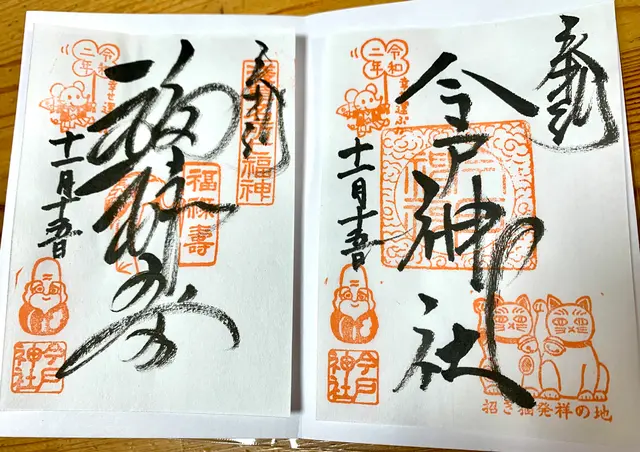 奉拝
今戸神社
令和
二年
幸せ運ぶ
十一月十五日
今戸
神社
招き猫発祥の地
奉拝
福神
福禄寿
福禄寿
令和
二年
幸せ運ぶ
十一月十五日
今戸
神社